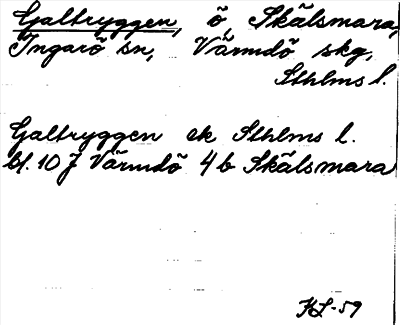 Galtryggen, ö, Skälsmara,
Ingarö sn, Värmdö skg,
Sthlms l.
Galtryggen ek Sthlms l.
bl. 10 J Värmdö 4 b Skälsmara
KL-59